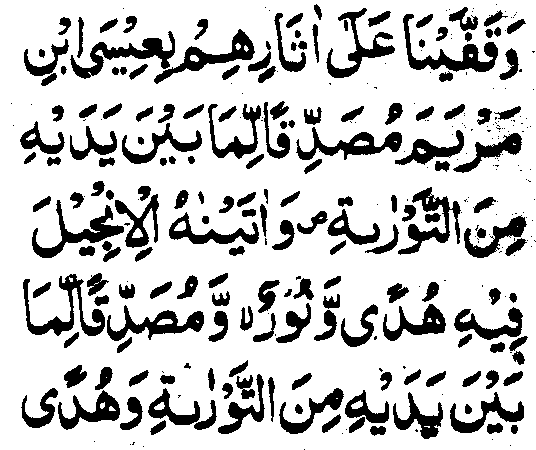 وَقَفَّيْنَا عَلٰٓى اٰثَارِهِمْ بِعِيْسَى ابْنِ
مَرْيَمَ مُصَدِّقًا لِّمَا بَيْنَ يَدَيْهِ
مِنَ التَّوْرٰىةِ ۪ وَاٰتَيْنٰهُ الْاِنْجِيْلَ
فِيْهِ هُدًى وَّنُوْرٌ ۙ وَّمُصَدِّقًا لِّمَا
بَيْنَ يَدَيْهِ مِنَ التَّوْرٰىةِ وَهُدًى